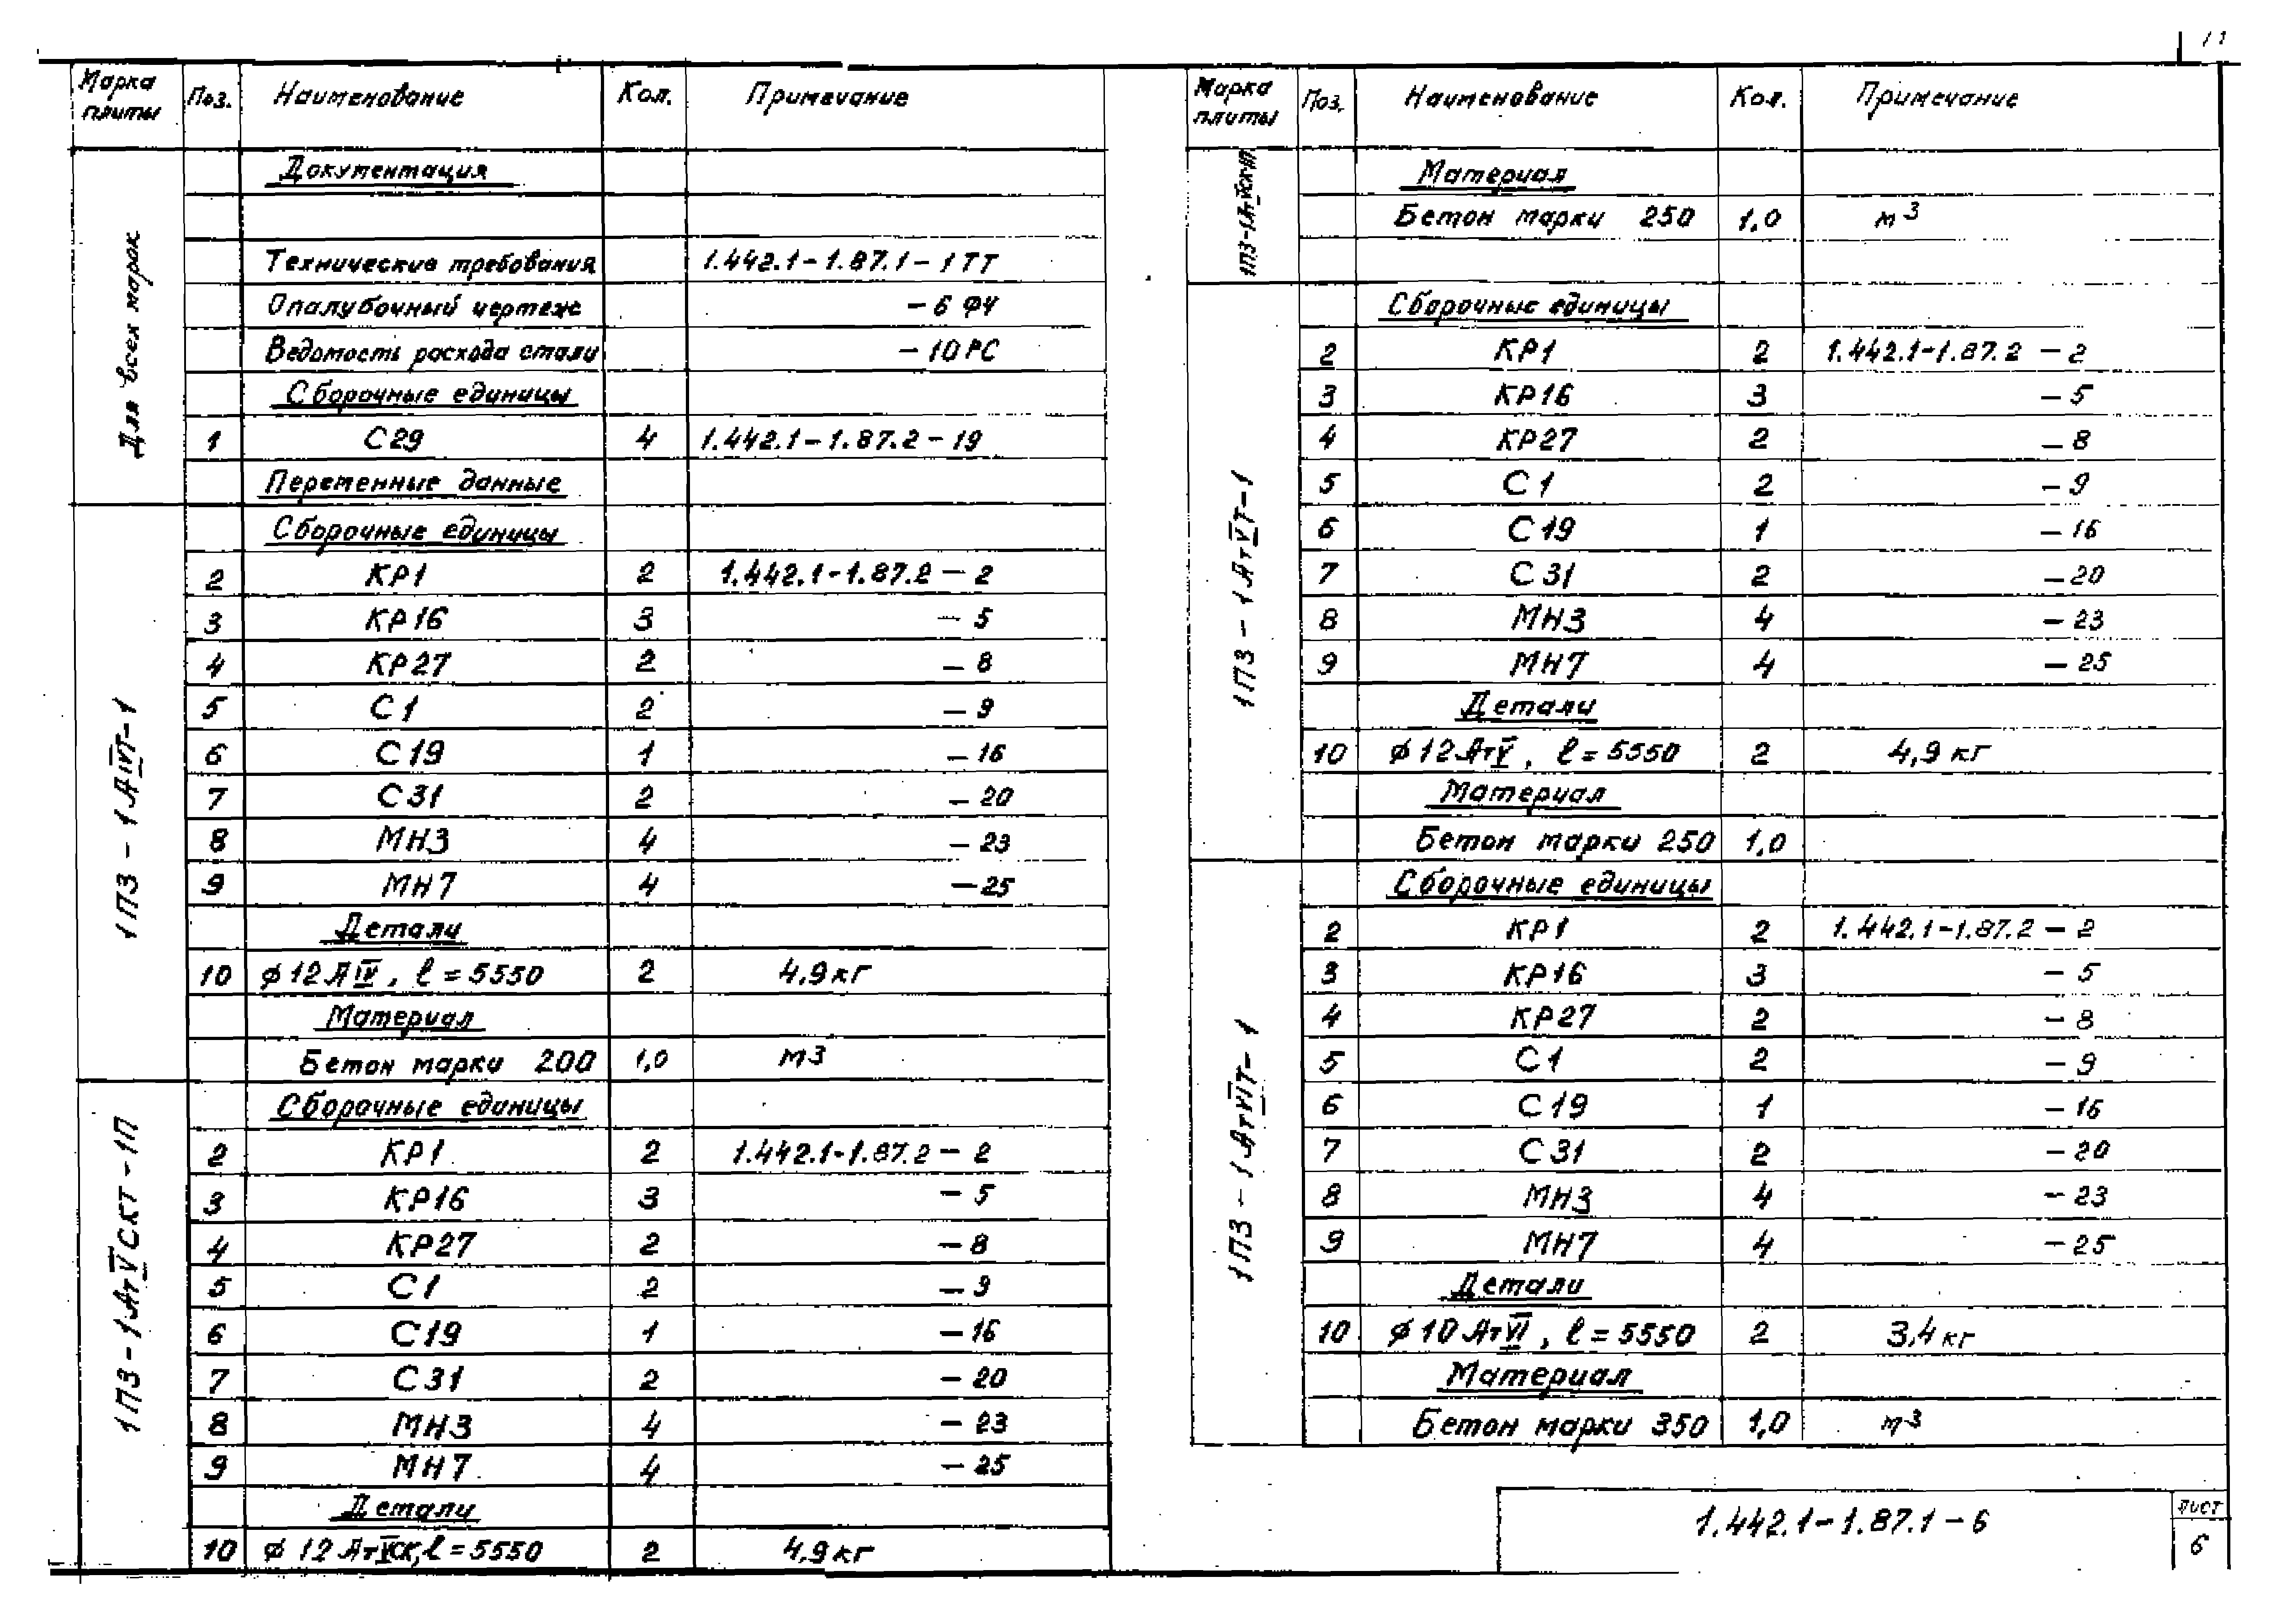 11
Марка плиты Поз. Наименование Кол. Примечание
Для всех марок
Документация
Технические требования 1.442.1-1.87.1-1ТТ
Опалубочный чертеж -6ФЧ
Ведомость расхода стали -10РС
Сборочные единицы
1 С29 4 1.442.1-1.87.2-19
Переменные данные
1П3-1АIVТ-1
Сборочные единицы
2 КР1 2 1.442.1-1.87.2-2
3 КР16 3 -5
4 КР27 2 -8
5 С1 2 -9
6 С19 1 -16
7 С31 2 -20
8 МН3 4 -23
9 МН7 4 -25
Детали
10 ⌀12АIV, ℓ=5550 2 4,9кг
Материал
Бетон марки 200 1,0 м3
1П3-1АтVСКТ-1П
Сборочные единицы
2 КР1 2 1.442.1-1.87.2-2
3 КР16 3 -5
4 КР27 2 -8
5 С1 2 -9
6 С19 1 -16
7 С31 2 -20
8 МН3 4 -23
9 МН7 4 -25
Детали
10 ⌀12АтVСК, ℓ=5550 2 4,9кг
Марка плиты Поз. Наименование Кол. Примечание
Материал
Бетон марки 250 1,0 м3
1П3-1АтVТ-1
Сборочные единицы
2 КР1 2 1.442.1-1.87.2-2
3 КР16 3 -5
4 КР27 2 -8
5 С1 2 -9
6 С19 1 -16
7 С31 2 -20
8 МН3 4 -23
9 МН7 4 -25
Детали
10 ⌀12АтV, ℓ=5550 2 4,9кг
Материал
Бетон марки 250 1,0
1П3-1АтVIТ-1
Сборочные единицы
2 КР1 2 1.442.1-1.87.2-2
3 КР16 3 -5
4 КР27 2 -8
5 С1 2 -9
6 С19 1 -16
7 С31 2 -20
8 МН3 4 -23
9 МН7 4 -25
Детали
10 ⌀10АтVI, ℓ=5550 2 3,4кг
Материал
Бетон марки 350 1,0 м3
1.442.1-1.87.1-6
Лист
6